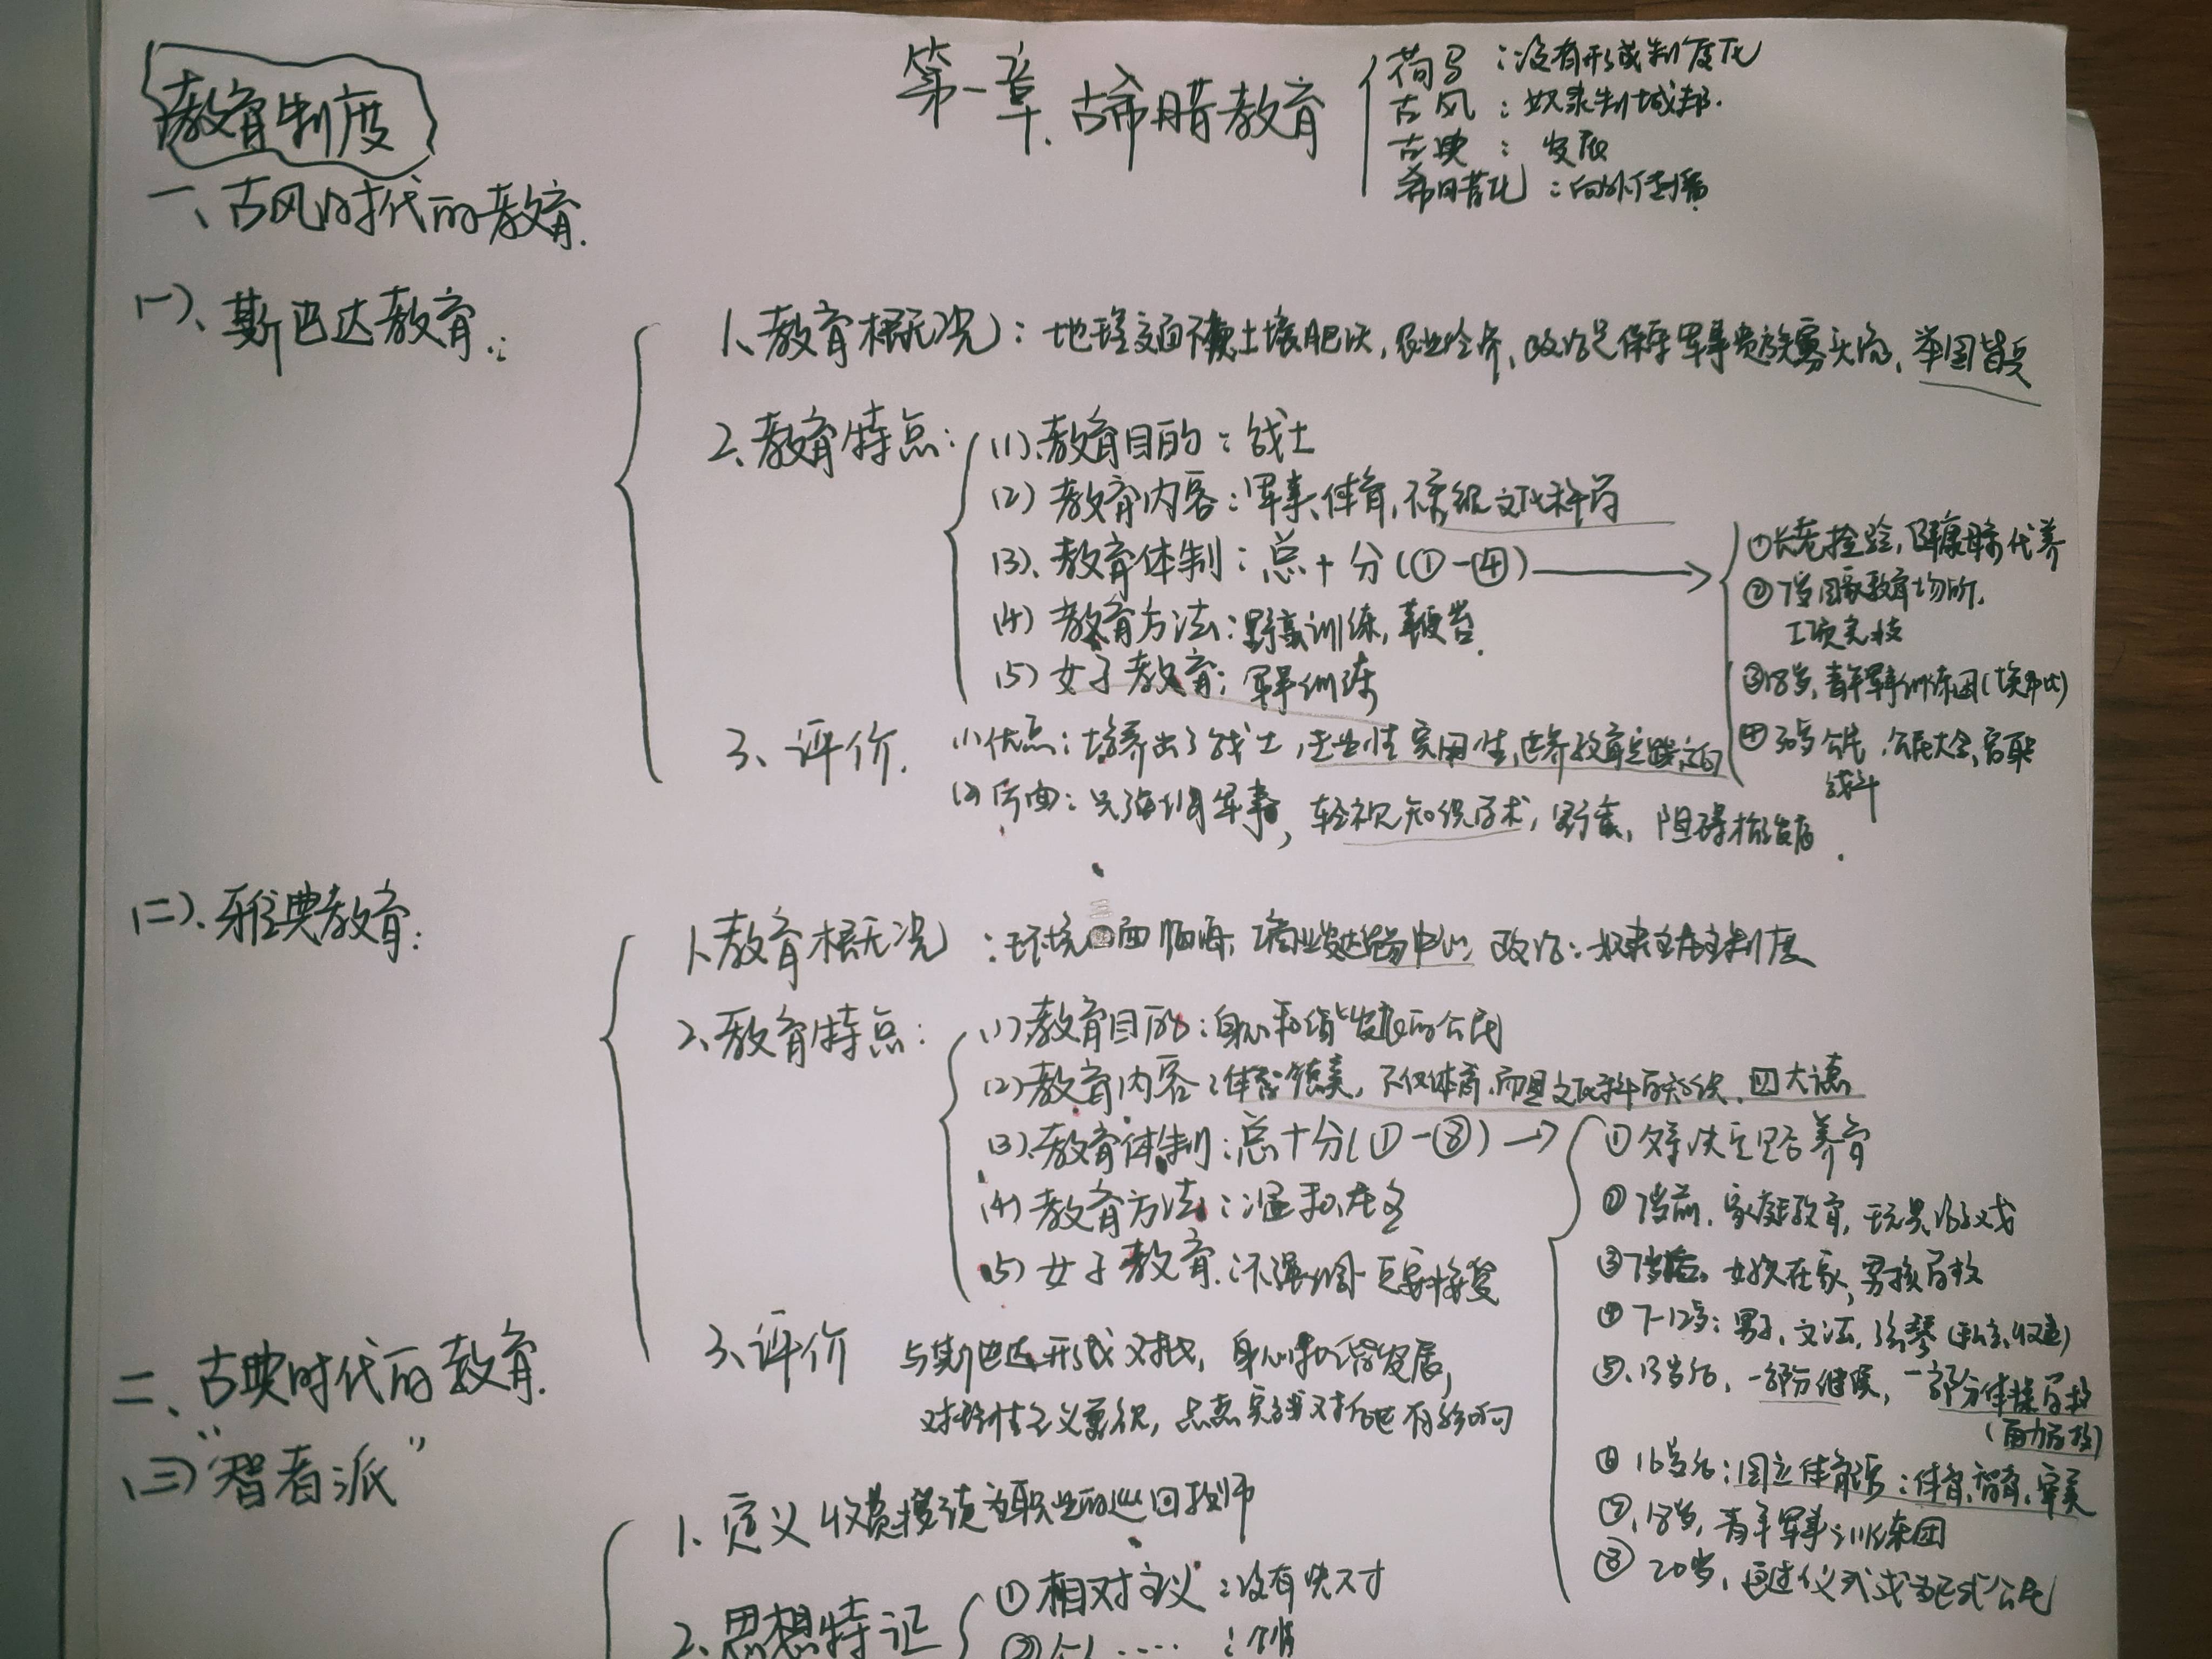 教育制度
第一章.古希腊教育
荷马：没有形成制度化
古风：奴隶制城邦.
古典：发展
希腊化：向外传播
一、古风时代的教育.
(一)、斯巴达教育.:
1、教育概况：地理交通不便土壤肥沃,农业经济,政治是保守军事贵族寡头治,举国皆兵
2、教育特点:
(1).教育目的：战士
(2) 教育内容：军事体育,不重视文化科学
(3).教育体制：总+分(①-④)
①长老检验,健康母亲代养
②7岁国家教育场所.
五项竞技
③18岁,青年军事训练团(埃弗比)
④30岁公民.公民大会,官职
(4) 教育方法：野蛮训练,鞭笞.
(5) 女子教育：军事训练
3、评价.
(1)优点：培养出了战士,专业性实用性,世界教育
(2)片面：只强调军事,轻视知识学术,野蛮,阻碍
(二).雅典教育:
1.教育概况：环境三面临海,工商业发达贸易中心,政治：奴隶主民主制度
2、教育特点:
(1)教育目的：身心和谐发展的公民
(2)教育内容：体智德美,不仅体育.而且文化科学知识.四大德
(3).教育体制:总+分(①-⑧)
①父亲决定是否养育
②7岁前.家庭教育,玩具、游戏
③7岁后.女孩在家,男孩学校
④7-12岁：男子,文法,弦琴(私立,收费)
⑤.13岁后,一部分继续,一部分体操学校
(角力学校)
⑥16岁后：国立体育馆：体育、智育、审美
⑦.18岁,青年军事训练团
⑧20岁,通过仪式成为正式公民
(4)教育方法：温和,民主
(5)女子教育.：不强调
3、评价 与斯巴达形成对比,身心和谐发展,
二、古典时代的教育.
(三)“智者派”
1、定义 收费授徒为职业的巡回教师
2、思想特征
①相对主义：没有绝对
②个人……：个